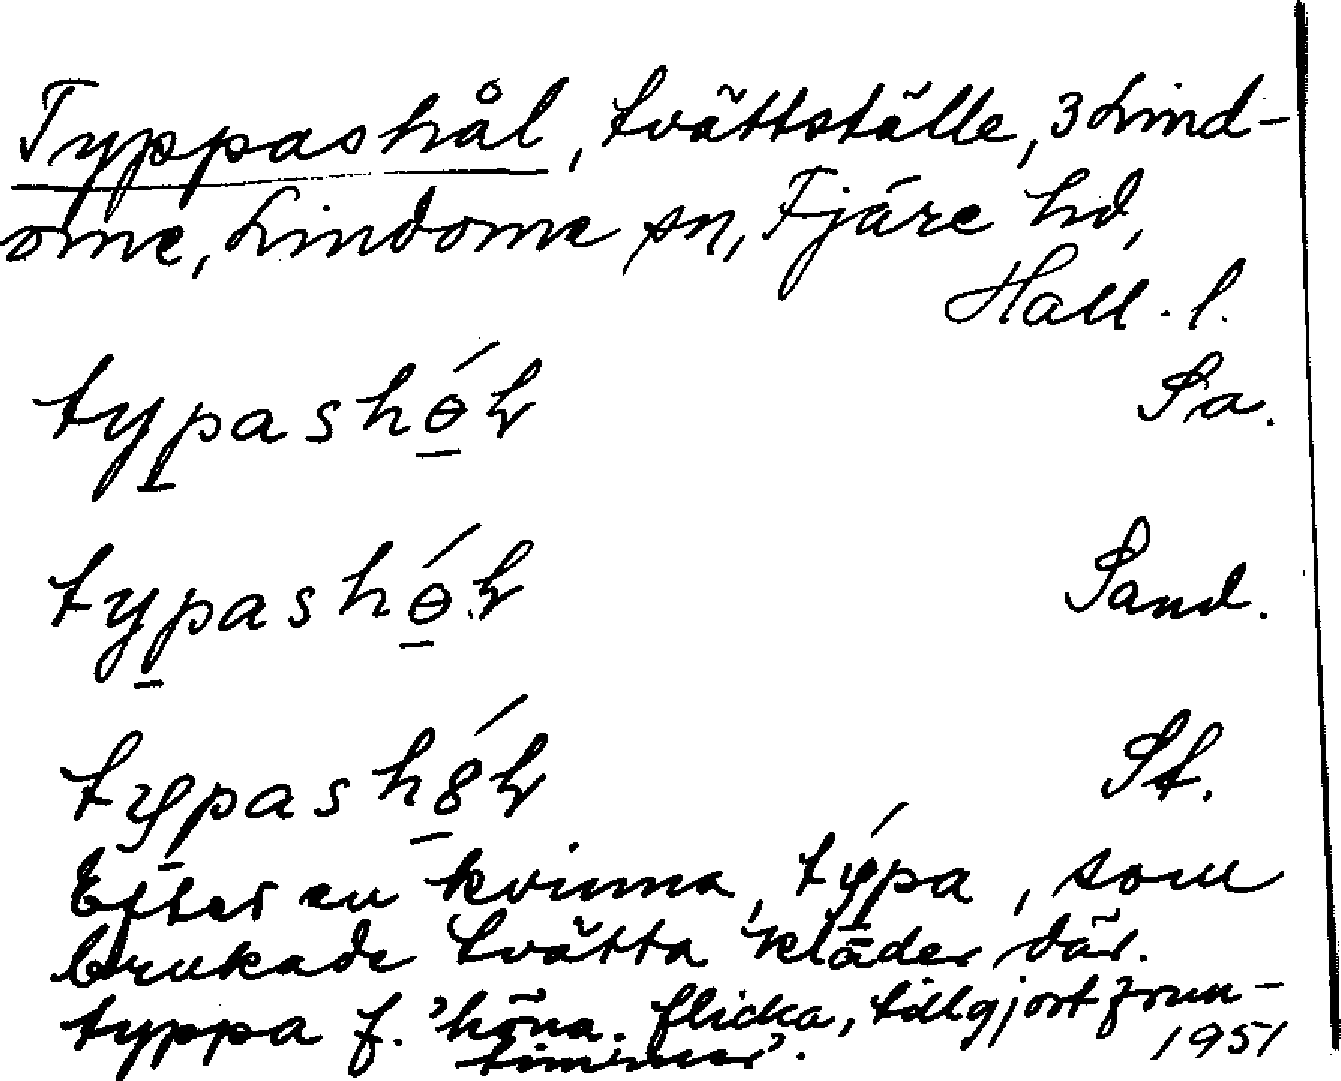 Typpashål, tvättställe, 3 Lind-
ome, Lindome sn, Fjäre hd,
Hall. l.
typashɵ́ɫ Sa.
typashɵ́ɫ Sand.
typashǿɫ St.
Efter en kvinna, týpa, som
brukade tvätta kläder där.
typpa f. 'höna. flicka, tillgjort frun-
timmer'. 1951